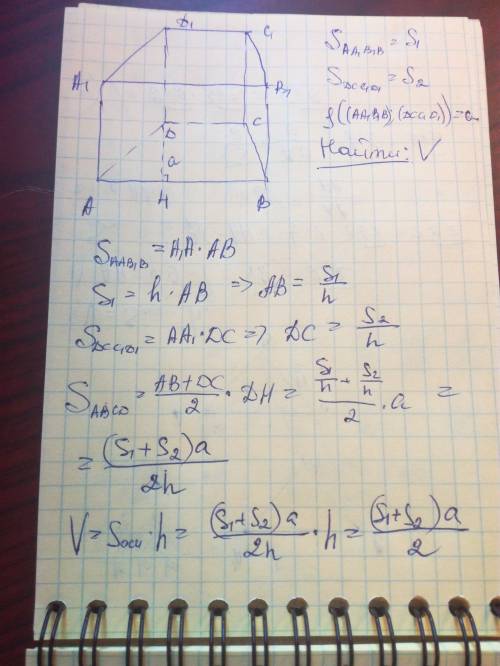 D₁
C₁
A₁
B₁
D
C
a
A
H
B
S_{AA₁B₁B} = S₁
S_{DCC₁D₁} = S₂
ρ((AA₁B₁B),(DCC₁D₁)) = a
Найти: V
S_{AA₁B₁B} = A₁A · AB
S₁ = h · AB => AB = S₁/h
S_{DCC₁D₁} = AA₁ · DC => DC = S₂/h
S_{ABCD} = (AB+DC)/2 · DH = (S₁/h + S₂/h)/2 · a =
= (S₁+S₂)a/2h
V = Sосн · h = (S₁+S₂)a/2h · h = (S₁+S₂)a/2